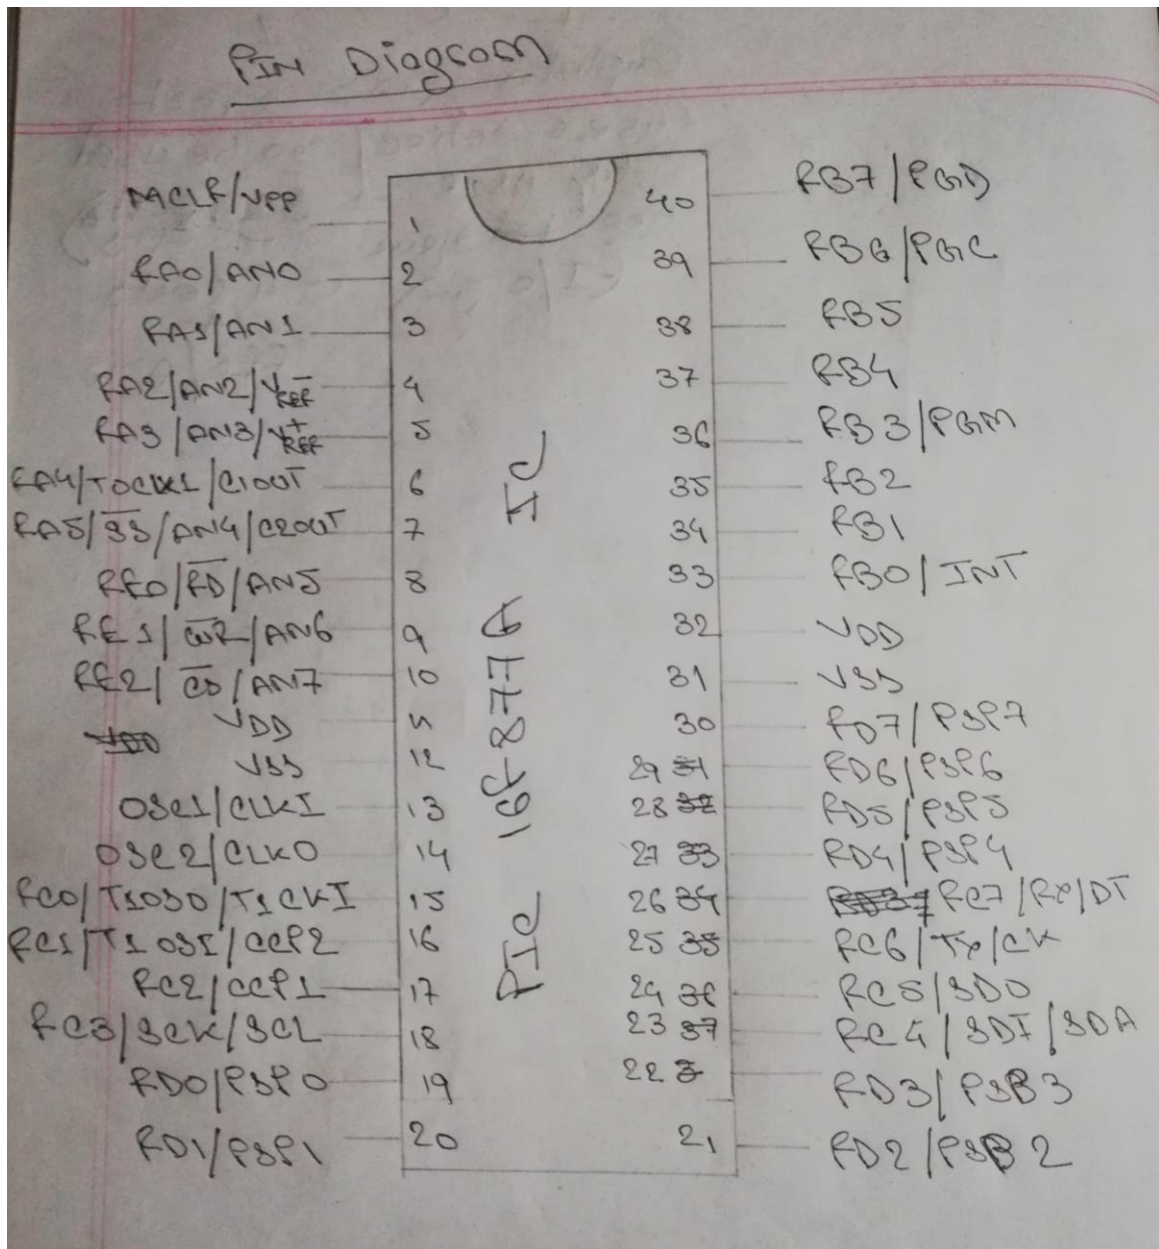 PIN Diagram
MCLR/VPP 1
RA0/AN0 2
RA1/AN1 3
RA2/AN2/VREF- 4
RA3/AN3/VREF+ 5
RA4/T0CK1/C1OUT 6
RA5/S̅S̅/AN4/C2OUT 7
RE0/R̅D̅/AN5 8
RE1/W̅R̅/AN6 9
RE2/C̅S̅/AN7 10
VDD 11
VSS 12
OSC1/CLKI 13
OSC2/CLKO 14
RC0/T1OSO/T1CKI 15
RC1/T1OSI/CCP2 16
RC2/CCP1 17
RC3/SCK/SCL 18
RD0/PSP0 19
RD1/PSP1 20
PIC 16F877A IC
40 RB7/PGD
39 RB6/PGC
38 RB5
37 RB4
36 RB3/PGM
35 RB2
34 RB1
33 RB0/INT
32 VDD
31 VSS
30 RD7/PSP7
29 RD6/PSP6
28 RD5/PSP5
27 RD4/PSP4
26 RC7/RX/DT
25 RC6/TX/CK
24 RC5/SDO
23 RC4/SDI/SDA
22 RD3/PSB3
21 RD2/PSB2